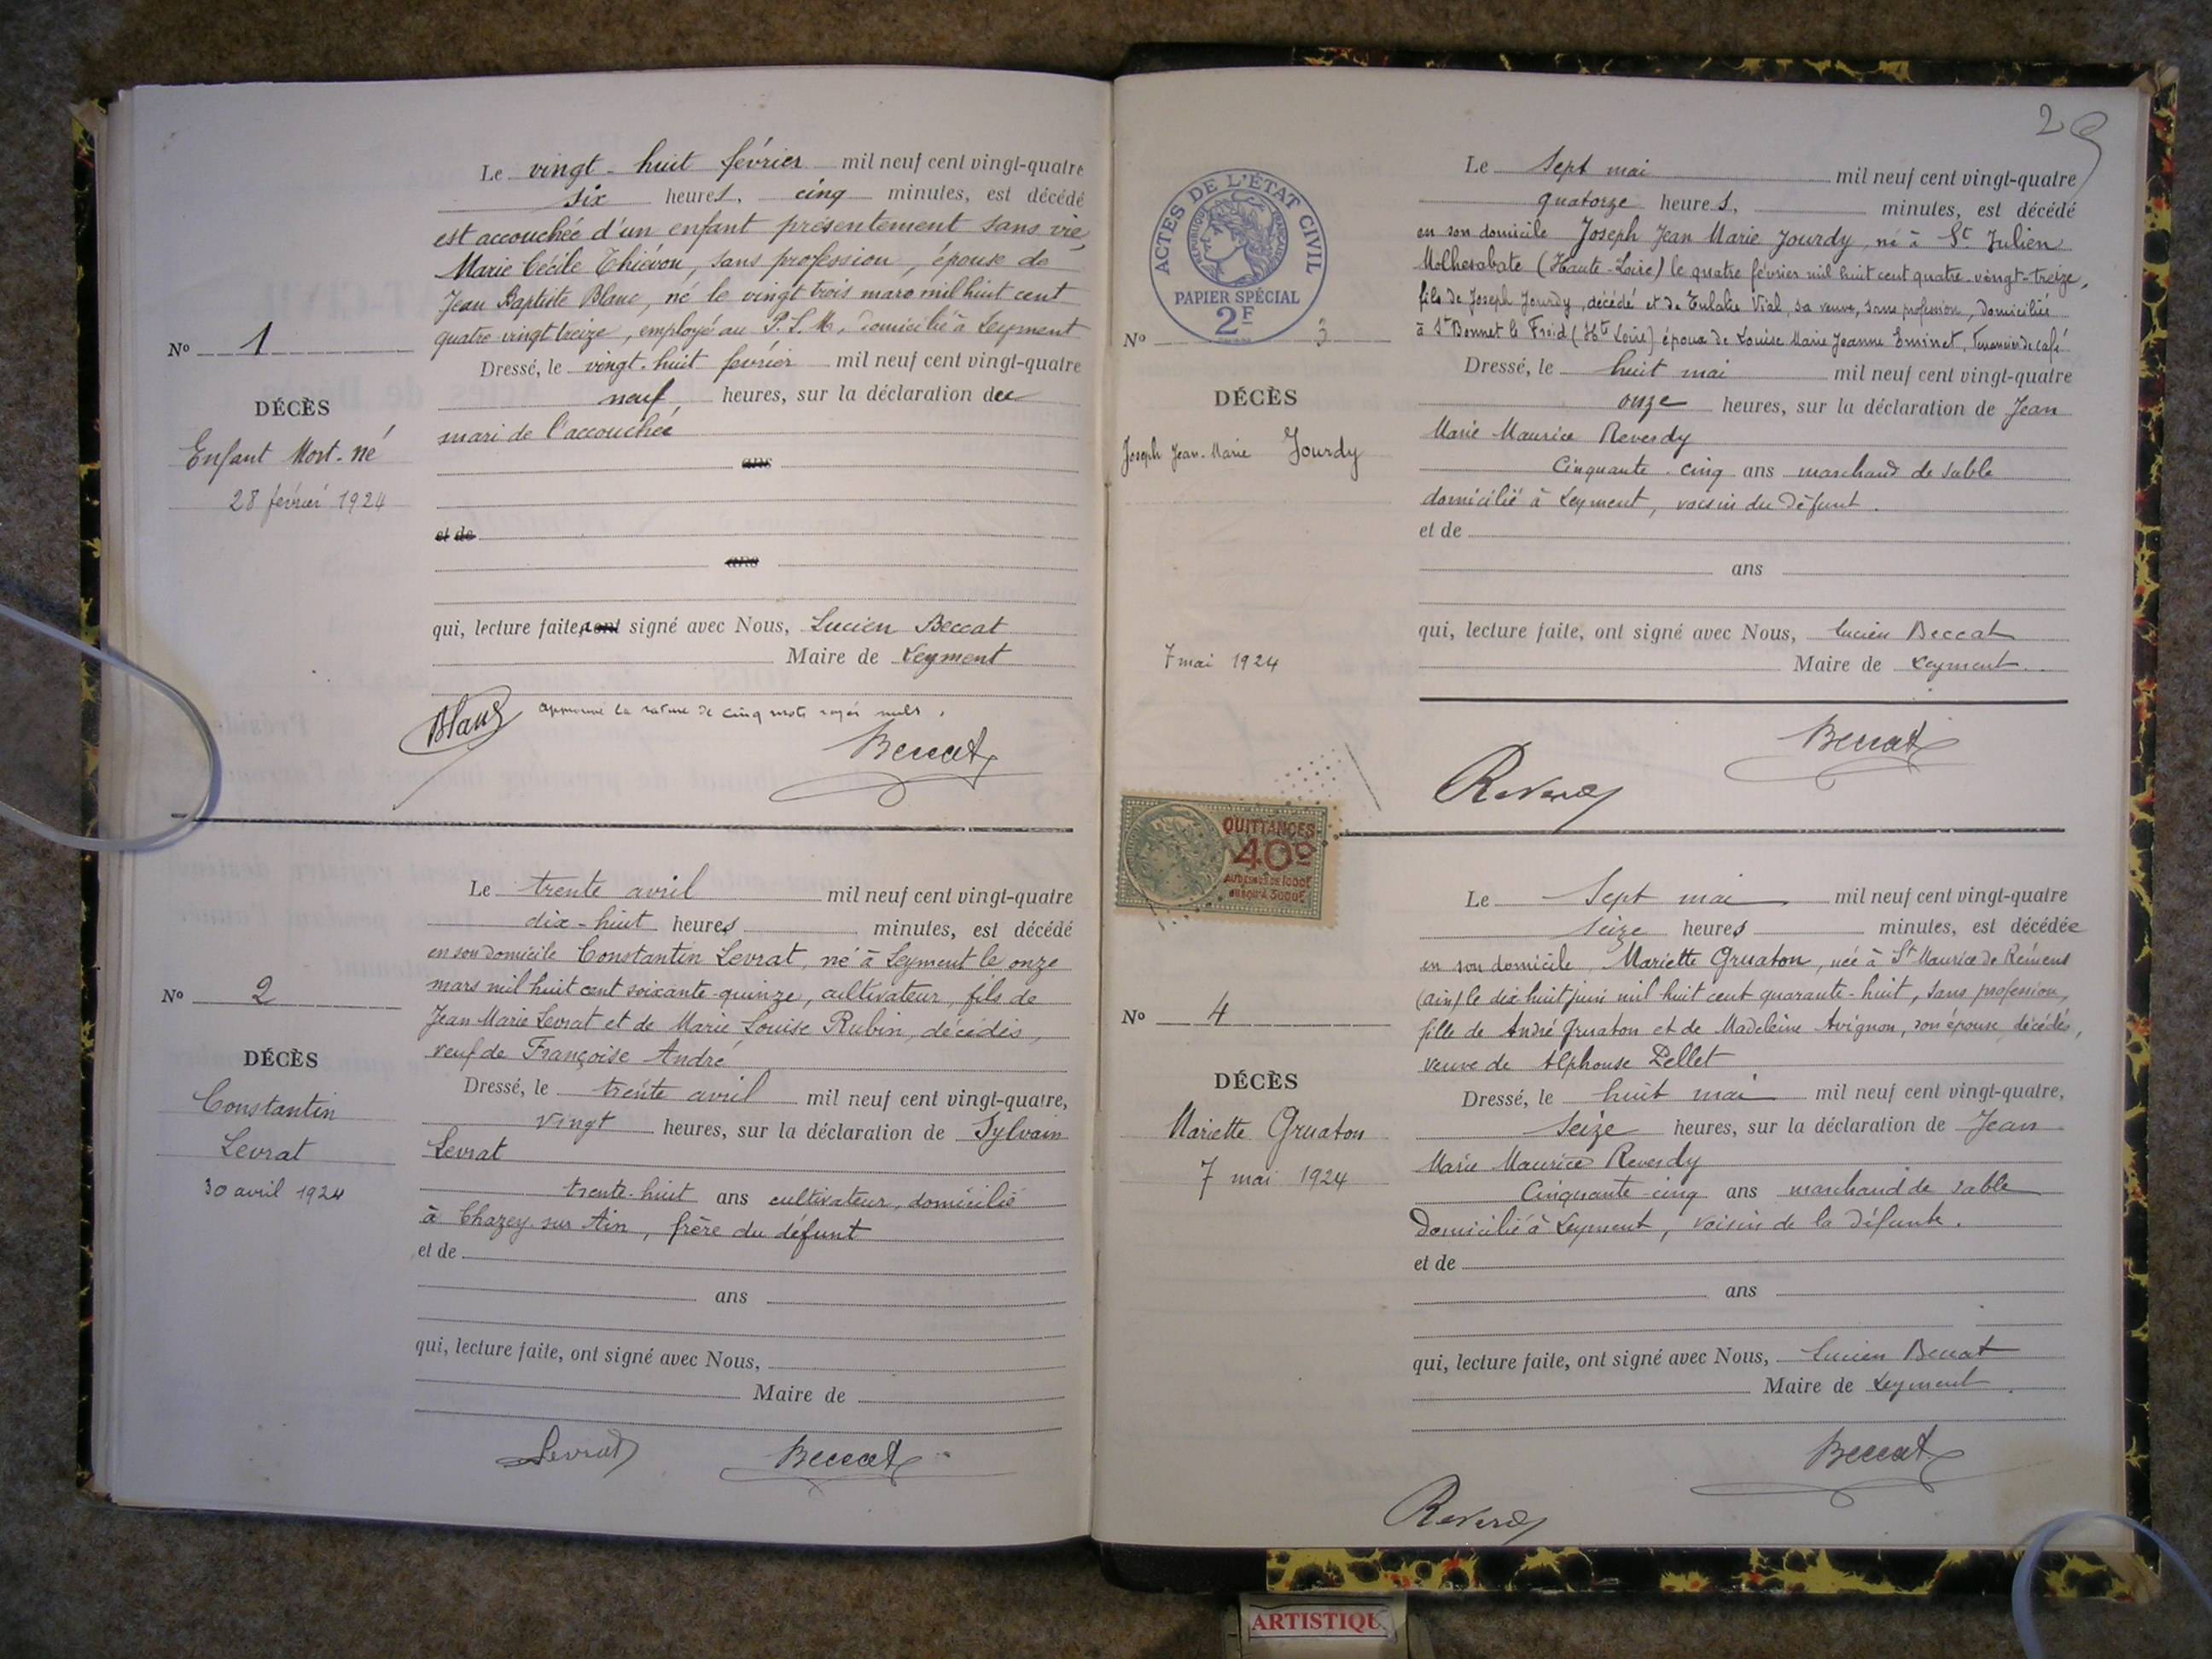 Le vingt-huit février mil neuf cent vingt-quatre
six heures, cinq minutes, est décédé
est accouchée d'un enfant présentement sans vie,
Marie Cécile Thiévon, sans profession, épouse de
Jean Baptiste Blanc, né le vingt trois mars mil huit cent
quatre-vingt treize, employé au P.L.M., domicilié à Leyment
Nº 1
Dressé, le vingt-huit février mil neuf cent vingt-quatre
neuf heures, sur la déclaration du
DÉCÈS
mari de l'accouchée
Enfant Mort-né
ans
28 février 1924
et de
ans
qui, lecture faite, ont signé avec Nous, Lucien Beccat
Maire de Leyment
approuvé la rature de cinq mots rayés nuls.
Blanc
Beccat
Le trente avril mil neuf cent vingt-quatre
dix-huit heures minutes, est décédé
en son domicile Constantin Levrat, né à Leyment le onze
mars mil huit cent soixante-quinze, cultivateur, fils de
Nº 2
Jean Marie Levrat et de Marie Louise Rubin, décédés,
veuf de Françoise André
DÉCÈS
Dressé, le trente avril mil neuf cent vingt-quatre,
Constantin
vingt heures, sur la déclaration de Sylvain
Levrat
Levrat
30 avril 1924
trente-huit ans cultivateur, domicilié
à Chazey-sur Ain, frère du défunt
et de
ans
qui, lecture faite, ont signé avec Nous,
Maire de
Levrat
Beccat
Le Sept mai mil neuf cent vingt-quatre
quatorze heures, minutes, est décédé
en son domicile Joseph Jean Marie Jourdy, né à St Julien
Molhesabate (Haute-Loire) le quatre février mil huit cent quatre-vingt-treize,
fils de Joseph Jourdy, décédé et de Eulalie Vial, sa veuve, sans profession, domiciliée
à St Bonnet le Froid (Hte Loire) époux de Louise Marie Jeanne Eminet, Tenancier de café
ACTES DE L'ÉTAT CIVIL
RÉPUBLIQUE FRANÇAISE
PAPIER SPÉCIAL
2F
Nº 3
Dressé, le huit mai mil neuf cent vingt-quatre
DÉCÈS
onze heures, sur la déclaration de Jean
Marie Maurice Reverdy
Joseph Jean-Marie Jourdy
Cinquante-cinq ans marchand de sable
domicilié à Leyment, voisin du défunt.
et de
ans
qui, lecture faite, ont signé avec Nous, Lucien Beccat
7 mai 1924
Maire de Leyment.
Beccat
Reverdy
QUITTANCES
40c
AU DESSUS DE 1000F
JUSQU'A 3000F
Le Sept mai mil neuf cent vingt-quatre
Seize heures minutes, est décédée
en son domicile, Mariette Gruaton, née à St Maurice de Rémens
(Ain) le dix huit juin mil huit cent quarante-huit, sans profession,
Nº 4
fille de André Gruaton et de Madeleine Avignon, son épouse, décédés,
veuve de Alphonse Pellet
DÉCÈS
Dressé, le huit mai mil neuf cent vingt-quatre,
Mariette Gruaton
Seize heures, sur la déclaration de Jean
7 mai 1924
Marie Maurice Reverdy
Cinquante-cinq ans marchand de sable
Domicilié à Leyment, voisin de la défunte.
et de
ans
qui, lecture faite, ont signé avec Nous, Lucien Beccat
Maire de Leyment.
Beccat
Reverdy
ARTISTIQU